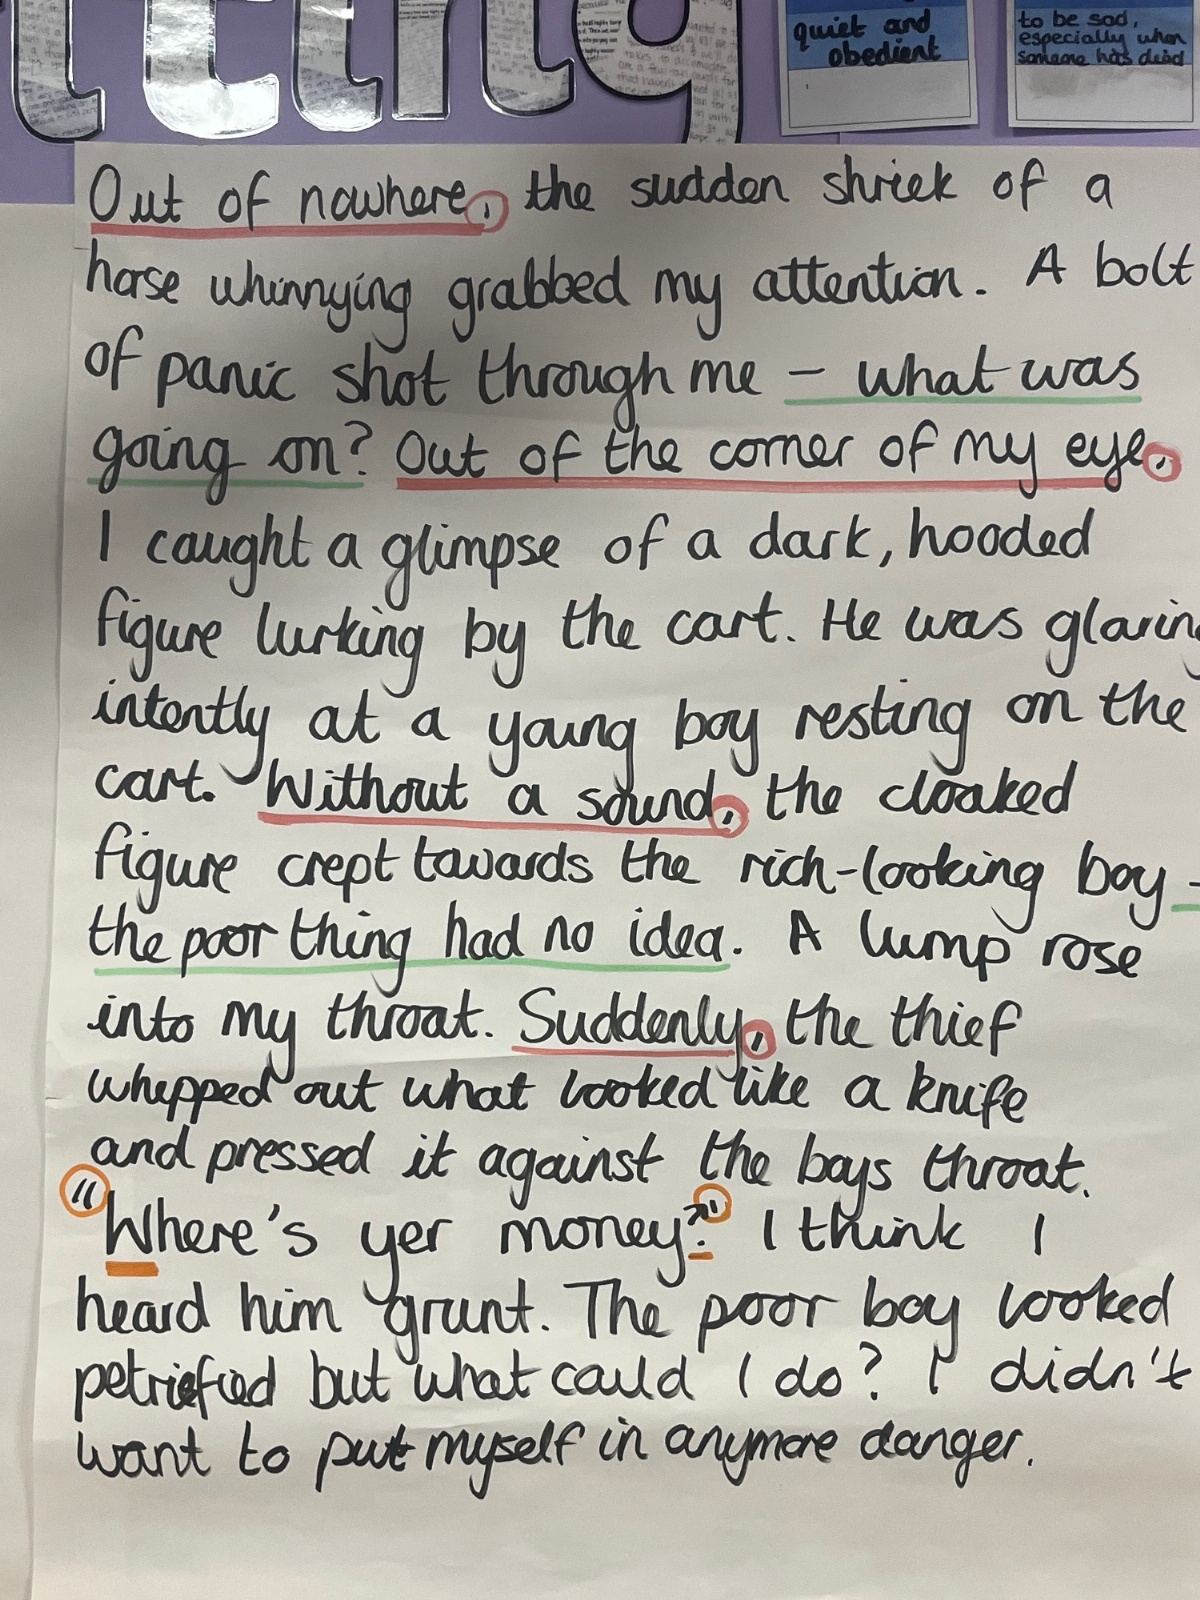 tting
quiet and
obedient
to be sad,
especially when
someone has died
Out of nowhere, the sudden shriek of a
horse whinnying grabbed my attention. A bolt
of panic shot through me – what was
going on? Out of the corner of my eye,
I caught a glimpse of a dark, hooded
figure lurking by the cart. He was glaring
intently at a young boy resting on the
cart. Without a sound, the cloaked
figure crept towards the rich-looking boy -
the poor thing had no idea. A lump rose
into my throat. Suddenly, the thief
whipped out what looked like a knife
and pressed it against the boys throat.
"Where's yer money?" I think I
heard him grunt. The poor boy looked
petriefied but what could I do? I didn't
want to put myself in anymore danger.